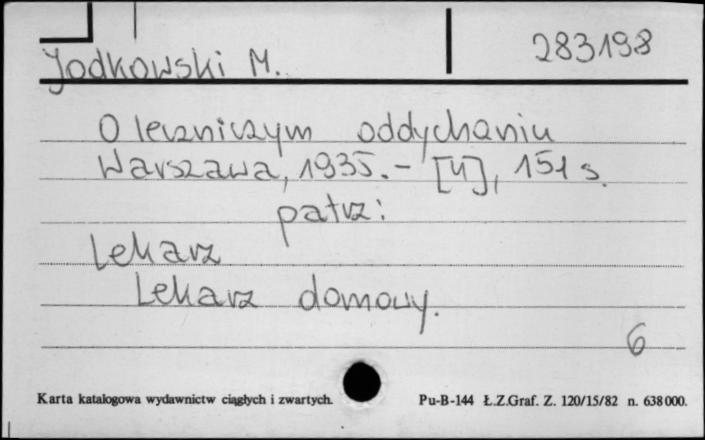 Jodkowski M.
283198
O leczniczym oddychaniu
Warszawa, 1935. - [4], 151 s.
patrz:
Lekarz
Lekarz domowy.
6
Karta katalogowa wydawnictw ciągłych i zwartych.
Pu-B-144 Ł.Z.Graf. Z. 120/15/82 n. 638000.